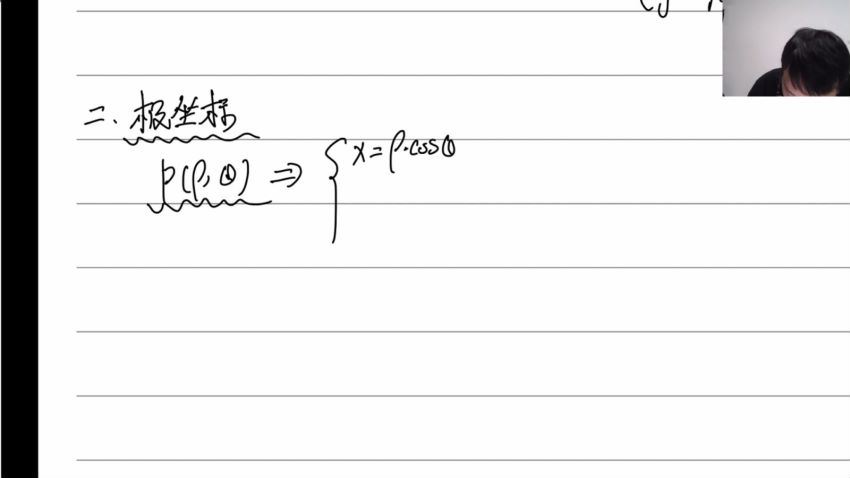 二.极坐标
P(ρ,θ) ⇒ { x=ρ·cosθ